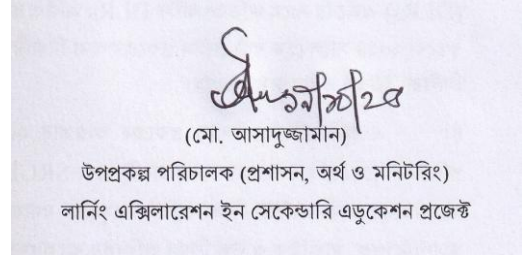 (মো. আসাদুজ্জামান)
উপপ্রকল্প পরিচালক (প্রশাসন, অর্থ ও মনিটরিং)
লার্নিং এক্সিলারেশন ইন সেকেন্ডারি এডুকেশন প্রজেক্ট